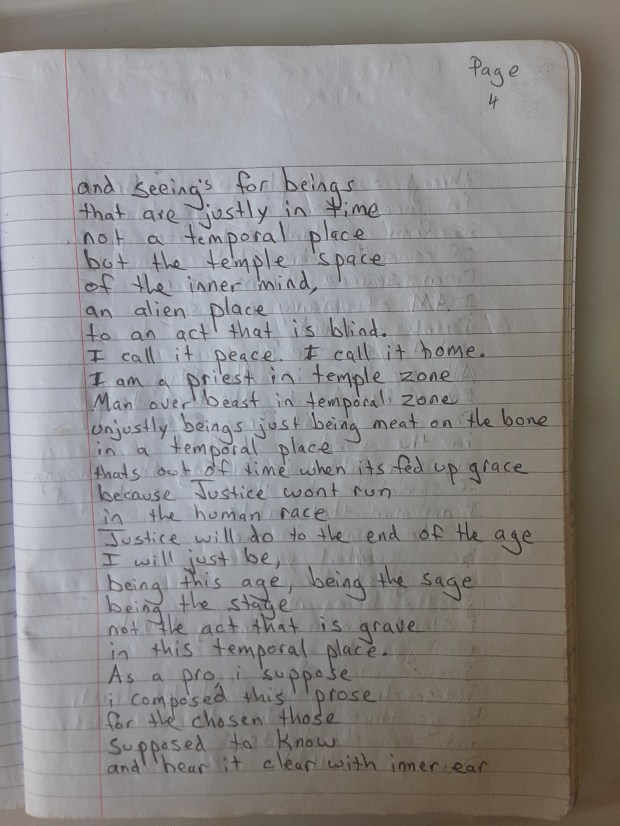 Page
4
and seeing's for beings
that are justly in time
not a temporal place
but the temple space
of the inner mind,
an alien place
to an act that is blind.
I call it peace. I call it home.
I am a priest in temple zone
Man over beast in temporal zone
unjustly beings just being meat on the bone
in a temporal place
thats out of time when its fed up grace
because Justice wont run
in the human race
Justice will do to the end of the age
I will just be,
being this age, being the sage
being the stage
not the act that is grave
in this temporal place.
As a pro, i suppose
i composed this prose
for the chosen those
supposed to know
and hear it clear with inner ear